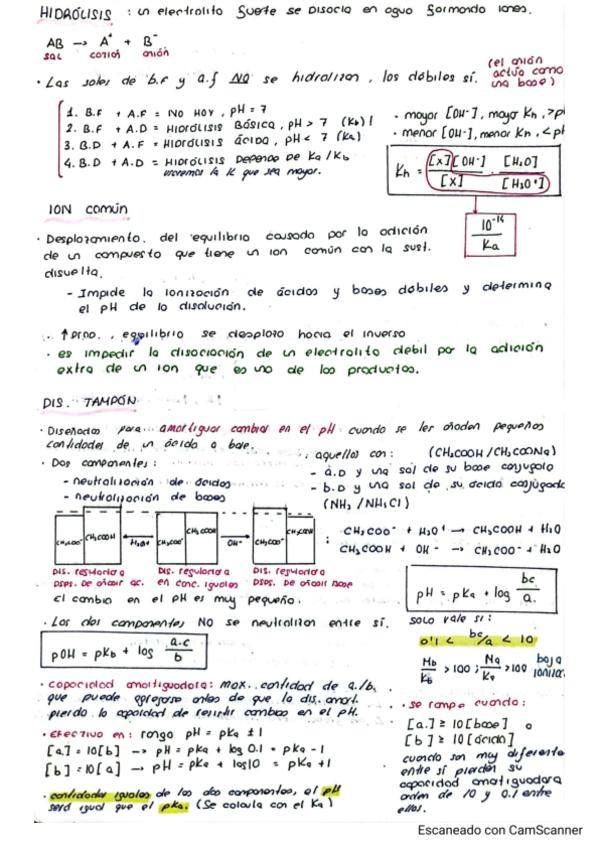 HIDRÓLISIS : un electrolito fuerte se disocia en agua formando iones.
AB → A⁺ + B⁻
sal catión anión
(el anión actua como una base)
• Las sales de b.f y a.f NO se hidrolizan, los débiles sí.
1. B.F + A.F = NO HOY, pH = 7
2. B.F + A.D = HIDRÓLISIS BÁSICA, pH > 7 (Kb)
3. B.D + A.F = HIDRÓLISIS ÁCIDA, pH < 7 (Ka)
4. B.D + A.D = HIDRÓLISIS DEPENDE DE Ka/Kb
usaremos la K que sea mayor.
• mayor [OH⁻], mayor Kh, > pH
• menor [OH⁻], menor Kh, < pH
Kh = [X][OH⁻] / [X] · [H₂O] / [H₃O⁺]
10⁻¹⁴ / Ka
ION común
• Desplazamiento del equilibrio causado por la adición
de un compuesto que tiene un ion común con la sust.
disuelta.
- Impide la ionización de ácidos y bases débiles y determina
el pH de la disolución.
↑ prod., equilibrio se desplaza hacia el inverso
• es impedir la disociación de un electrolito debil por la adición
extra de un ion que es uno de los productos.
DIS. TAMPÓN
• Diseñados para amortiguar cambios en el pH cuando se les añaden pequeñas
cantidades de un ácido o base.
• Dos componentes :
- neutralización de ácidos
- neutralización de bases
aquellos con : (CH₃COOH / CH₃COONa)
- a.D y una sal de su base conjugada
- b.D y una sal de su ácido conjugado
(NH₃ / NH₄Cl)
CH₃COO⁻ CH₃COOH ← H₃O⁺ CH₃COO⁻ CH₃COOH OH⁻ → CH₃COO⁻ CH₃COOH
: CH₃COO⁻ + H₃O⁺ → CH₃COOH + H₂O
CH₃COOH + OH⁻ → CH₃COO⁻ + H₂O
DIS. reguladora DSPS. DE añadir ac.
DIS. reguladora en conc. iguales
DIS. reguladora DSPS. DE añadir base
El cambio en el pH es muy pequeño.
pH = pKa + log bc / a.
• Los dos componentes NO se neutralizan entre sí.
solo vale si :
0'1 < bc/a < 10
pOH = pKb + log a.c / b
Mb / Kb > 100 ; Ma / Ka > 100 baja ioniza
• capacidad amortiguadora : max. cantidad de a./b.
que puede agregarse antes de que la dis. amort.
pierda la capacidad de resistir cambios en el pH.
• EFECTIVO en : rango pH = pKa ± 1
[a.] = 10[b] → pH = pKa + log 0.1 = pKa - 1
[b] = 10[a] → pH = pKa + log 10 = pKa + 1
• cantidades iguales de los dos componentes, el pH
será igual que el pKa. (Se calcula con el Ka)
• se rompe cuando :
[a.] ≥ 10 [base] o
[b] ≥ 10 [ácido]
cuando son muy diferente
entre sí pierden su
capacidad amortiguadora
orden de 10 y 0.1 entre
ellos.
Escaneado con CamScanner